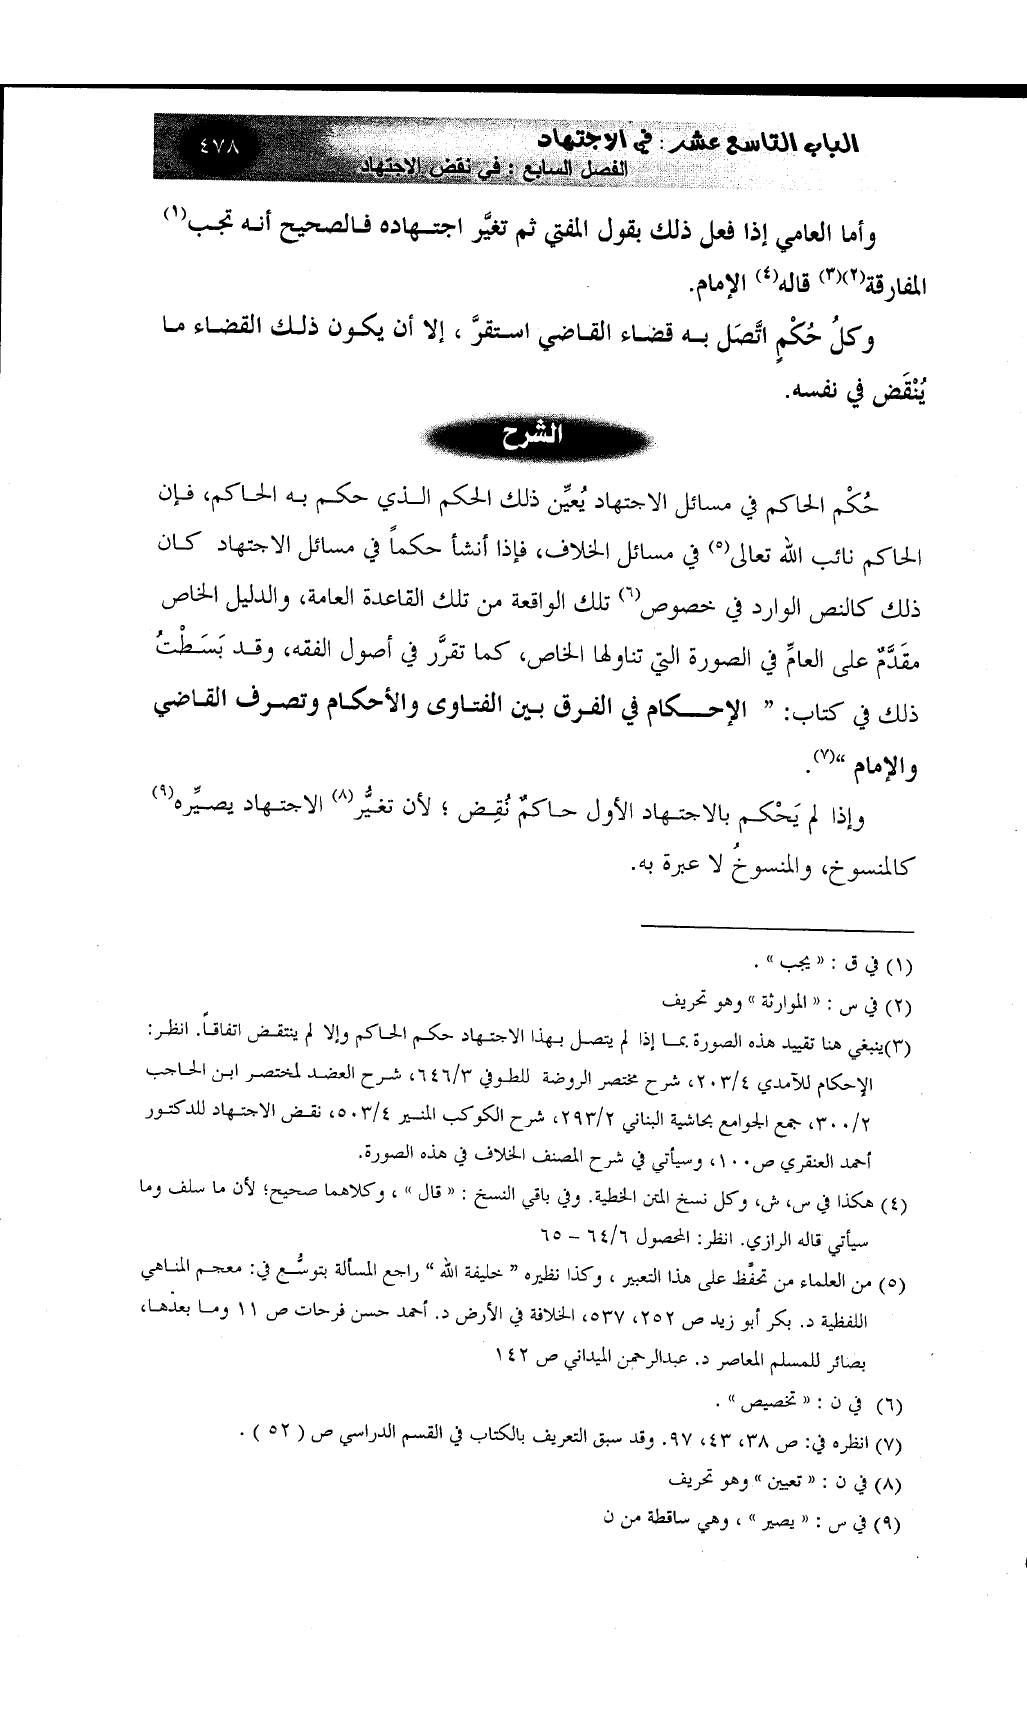 الباب التاسع عشر : في الاجتهاد
٤٧٨
الفصل السابع : في نقض الاجتهاد
وأما العامي إذا فعل ذلك بقول المفتي ثم تغيَّر اجتهاده فالصحيح أنه تجب(١)
المفارقة(٢)(٣) قاله(٤) الإمام.
وكلُ حُكْمٍ اتَّصَل به قضاء القاضي استقرَّ ، إلا أن يكون ذلك القضاء ما
يُنْقَض في نفسه.
الشرح
حُكْم الحاكم في مسائل الاجتهاد يُعيِّن ذلك الحكم الذي حكم به الحاكم، فإن
الحاكم نائب الله تعالى(٥) في مسائل الخلاف، فإذا أنشأ حكماً في مسائل الاجتهاد كان
ذلك كالنص الوارد في خصوص(٦) تلك الواقعة من تلك القاعدة العامة، والدليل الخاص
مقدَّمٌ على العامِّ في الصورة التي تناولها الخاص، كما تقرَّر في أصول الفقه، وقد بَسَطْتُ
ذلك في كتاب: " الإحكام في الفرق بين الفتاوى والأحكام وتصرف القاضي
والإمام "(٧).
وإذا لم يَحْكم بالاجتهاد الأول حاكمٌ نُقِض ؛ لأن تغيُّر(٨) الاجتهاد يصيِّره(٩)
كالمنسوخ، والمنسوخُ لا عبرة به.
(١) في ق : « يجب » .
(٢) في س : « الموارثة » وهو تحريف
(٣)ينبغي هنا تقييد هذه الصورة بما إذا لم يتصل بهذا الاجتهاد حكم الحاكم وإلا لم ينتقض اتفاقاً. انظر:
الإحكام للآمدي ٢٠٣/٤، شرح مختصر الروضة للطوفي ٦٤٦/٣، شرح العضد لمختصر ابن الحاجب
٣٠٠/٢، جمع الجوامع بحاشية البناني ٢٩٣/٢، شرح الكوكب المنير ٥٠٣/٤، نقض الاجتهاد للدكتور
أحمد العنقري ص١٠٠، وسيأتي في شرح المصنف الخلاف في هذه الصورة.
(٤) هكذا في س، ش، وكل نسخ المتن الخطية. وفي باقي النسخ : « قال » ، وكلاهما صحيح؛ لأن ما سلف وما
سيأتي قاله الرازي. انظر: المحصول ٦٤/٦ – ٦٥
(٥) من العلماء من تحفَّظ على هذا التعبير ، وكذا نظيره " خليفة الله " راجع المسألة بتوسُّع في: معجم المناهي
اللفظية د. بكر أبو زيد ص ٢٥٢، ٥٣٧، الخلافة في الأرض د. أحمد حسن فرحات ص ١١ وما بعدها،
بصائر للمسلم المعاصر د. عبدالرحمن الميداني ص ١٤٢
(٦) في ن : « تخصيص » .
(٧) انظره في: ص ٣٨، ٤٣، ٩٧. وقد سبق التعريف بالكتاب في القسم الدراسي ص ( ٥٢ ) .
(٨) في ن : « تعيين » وهو تحريف
(٩) في س : « يصير » ، وهي ساقطة من ن